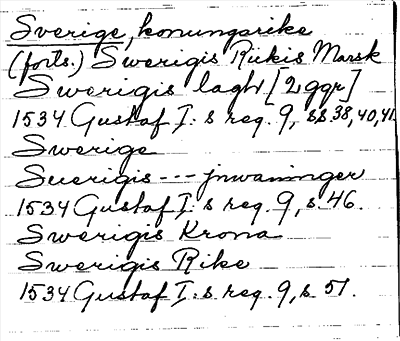 Sverige, konungarike
(forts.) Swerigis Rickis Marsk
Swerigis laghr [2 ggr]
1534 Gustaf I:s reg. 9, ss 38, 40, 41.
Swerige
Suerigis --- jnwaninger
1534 Gustaf I:s reg. 9, s. 46.
Swerigis Krona
Swerigis Rike
1534 Gustaf I:s reg. 9, s. 51.